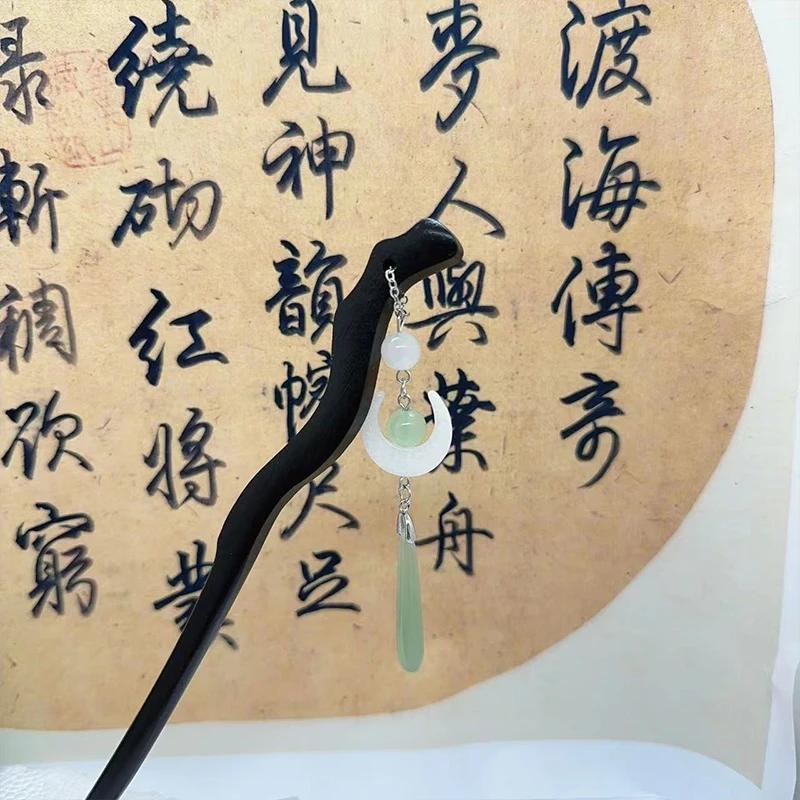 渡海傳奇
夢人與葉舟
見神韻尺足
繞砌紅將
稠欲窮